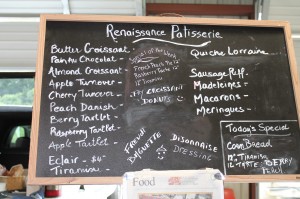 Renaissance Patisserie
Butter Croissant
Pain Au Chocolat
Almond Croissant
Apple Turnover -
Cherry Turnover
Peach Danish -
Berry Tartlet -
Raspberry Tartlet
Apple Tartlet
Eclair -
Tiramisu
French
Raspberry Tarte
Tiramisu
CROISSANT
DONUTS
French
BAGUETTE
DIJONNAISE
DRESSING
Quiche Lorraine
Sausage Puff.
Madeleines -
Macarons -
Meringues -
Today's Special
Corn Bread
12" Tiramisu
12" TARTE BERRY
Food